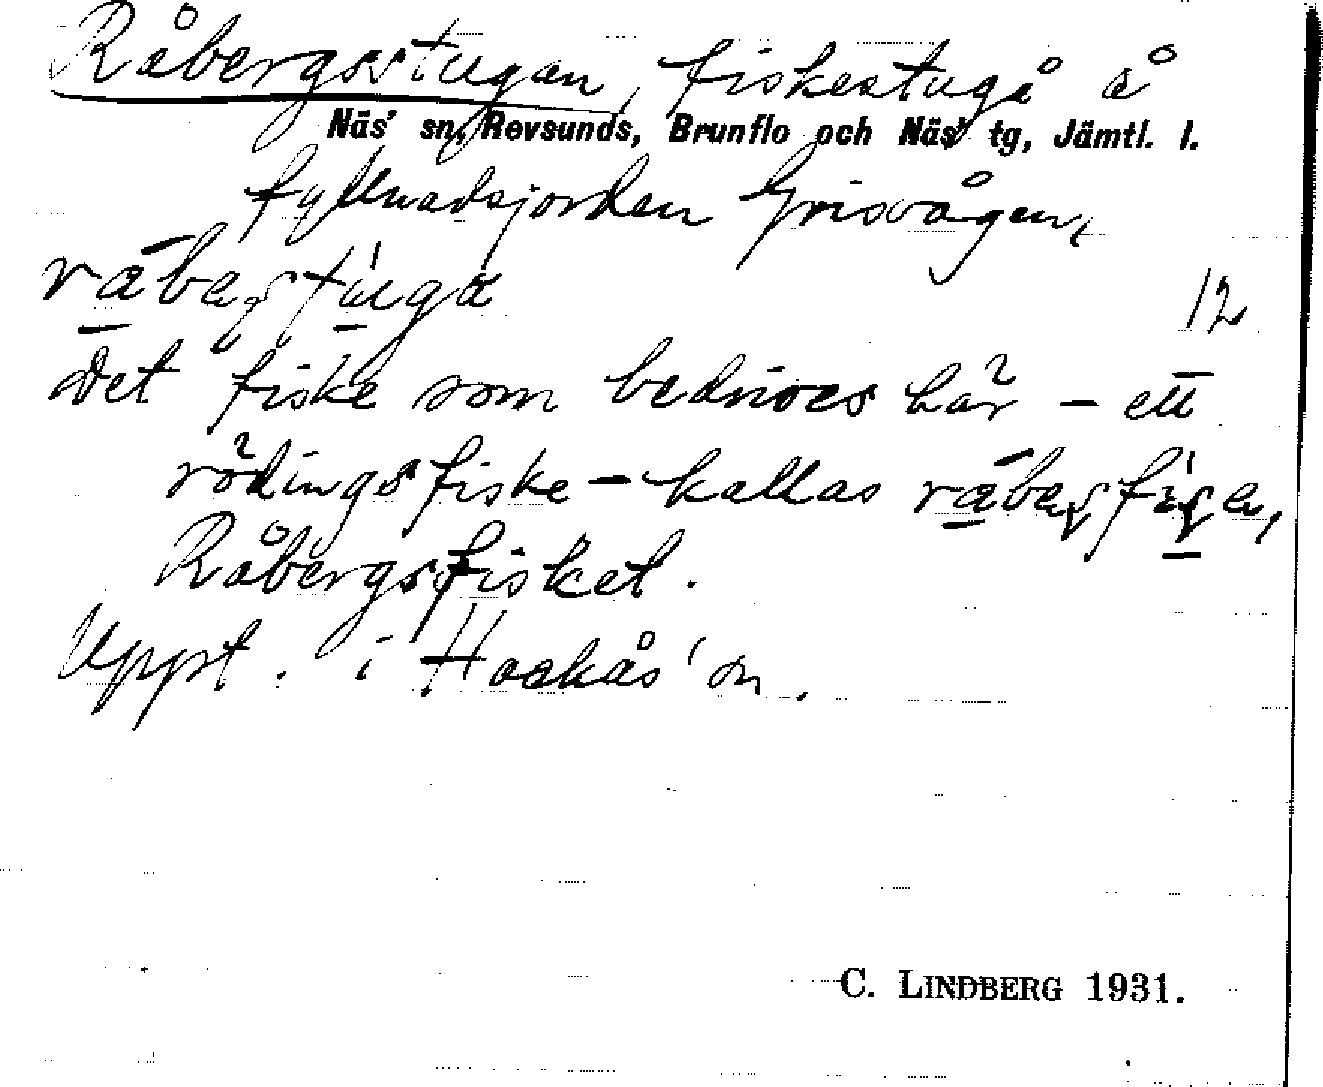 Råbergsstugan, fiskestuga å
Näs' sn, Revsunds, Brunflo och Näs' tg, Jämtl. l.
fyllnadsjorden Grisvågen,
12
Det fiske som bedrives här – ett
rödingsfiske – kallas
Råbergsfisket.
Uppst. i Hackås' sn.
C. LINDBERG 1931.